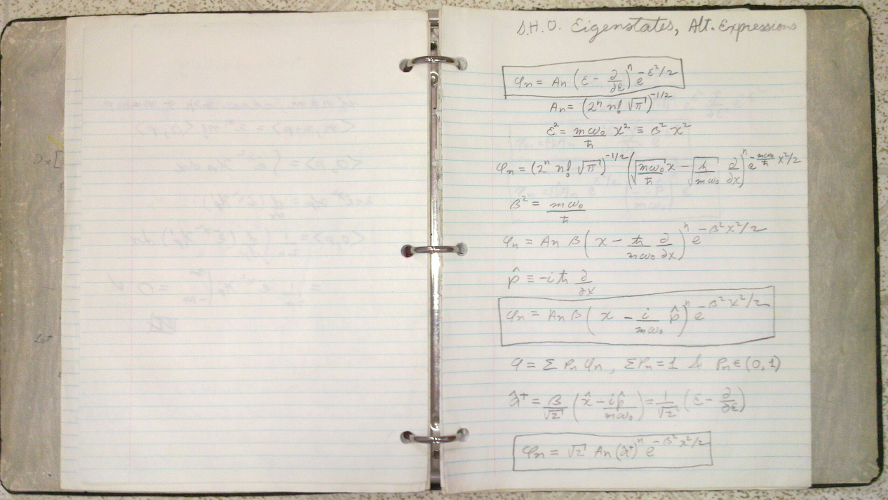 S.H.O. Eigenstates, Alt. Expressions
φn = An (ε - ∂/∂ε)^n e^(-ε²/2)
An = (2^n n! √π)^(-1/2)
ε² = mω₀/ħ x² ≡ β² x²
φn = (2^n n! √π)^(-1/2) (√(mω₀/ħ) x - √(ħ/mω₀) ∂/∂x)^n e^(-mω₀/ħ x²/2)
β² = mω₀/ħ
φn = An β (x - ħ/mω₀ ∂/∂x)^n e^(-β²x²/2)
p̂ ≡ -iħ ∂/∂x
φn = An β (x - i/mω₀ p̂)^n e^(-β²x²/2)
φ = Σ Pn φn, ΣPn = 1 & Pn ∈ (0,1)
â† = β/√2 (x̂ - ip̂/mω₀) = 1/√2 (ε - ∂/∂ε)
φn = √2 An (â†)^n e^(-β²x²/2)